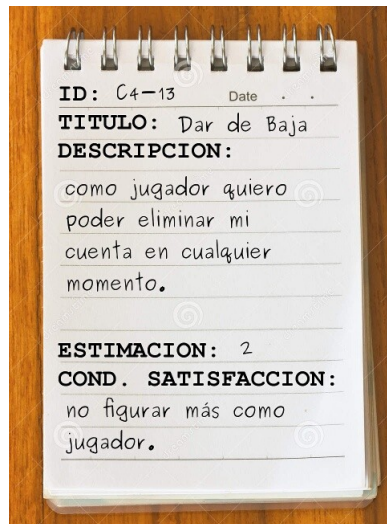 ID: C4-13 Date . .
TITULO: Dar de Baja
DESCRIPCION:
como jugador quiero
poder eliminar mi
cuenta en cualquier
momento.
ESTIMACION: 2
COND. SATISFACCION:
no figurar más como
jugador.